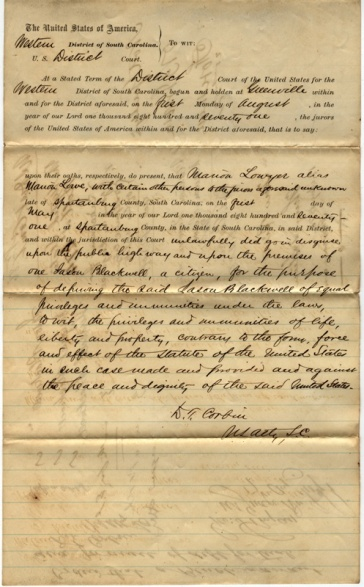 The United States of America,
Western District of South Carolina. To wit:
U. S. District Court.
At a Stated Term of the District Court of the United States for the
Western District of South Carolina, begun and holden at Greenville within
and for the District aforesaid, on the first Monday of August, in the
year of our Lord one thousand eight hundred and seventy one, the jurors
of the United States of America within and for the District aforesaid, that is to say:
upon their oaths, respectively, do present, that Marion Lowyer alias
Marion Lowe, with certain other persons to the jurors aforesaid unknown
late of Spartanburg County, South Carolina; on the first day of
May in the year of our Lord one thousand eight hundred and seventy-
one, at Spartanburg County, in the State of South Carolina, in said District,
and within the jurisdiction of this Court unlawfully did go in disguise
upon the public highway and upon the premises of
one Jason Blackwell, a citizen, for the purpose
of depriving the said Jason Blackwell of equal
privileges and immunities under the laws,
to wit, the privileges and immunities of life,
liberty and property, contrary to the form, force
and effect of the Statute of the United States
in such case made and provided and against
the peace and dignity of the said United States.
D. T. Corbin
US Atty, S.C.